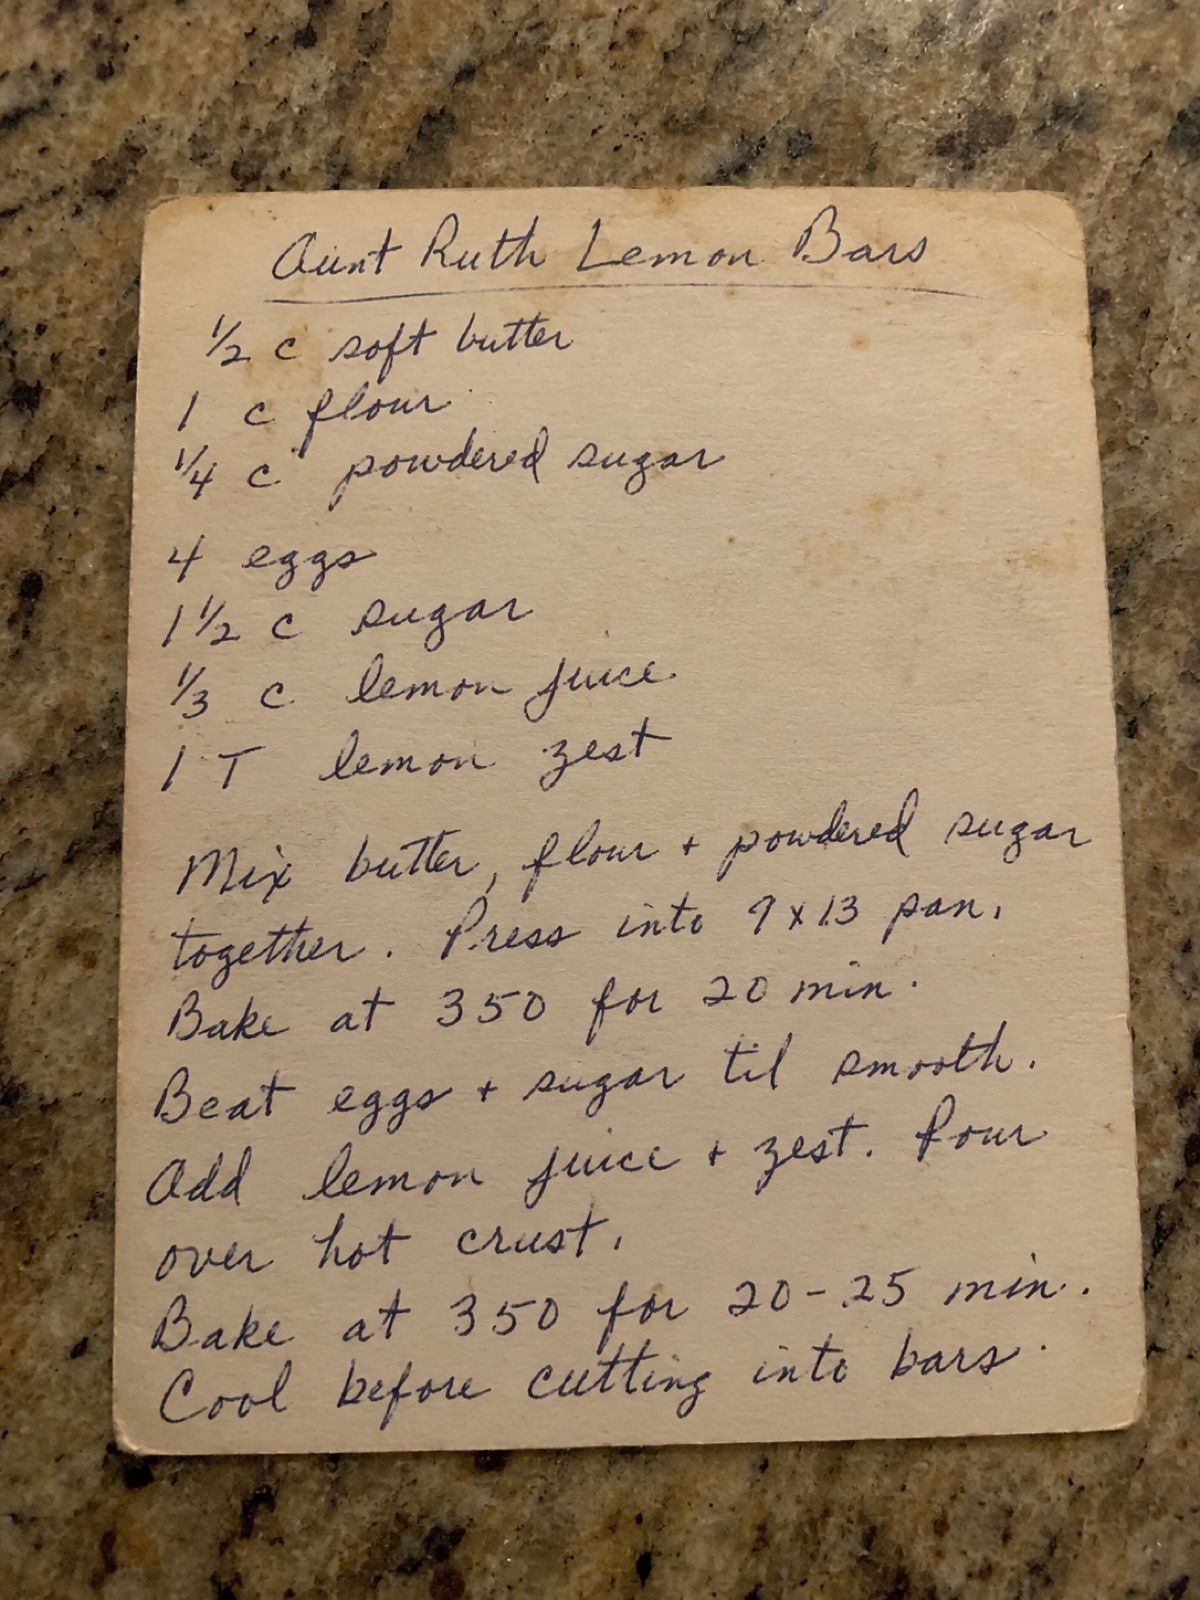 Aunt Ruth Lemon Bars
1/2 c soft butter
1 c flour
1/4 c powdered sugar
4 eggs
1 1/2 c sugar
1/3 c lemon juice
1 T lemon zest
Mix butter, flour + powdered sugar
together. Press into 9x13 pan.
Bake at 350 for 20 min.
Beat eggs + sugar til smooth.
Add lemon juice + zest. Pour
over hot crust.
Bake at 350 for 20-25 min.
Cool before cutting into bars.